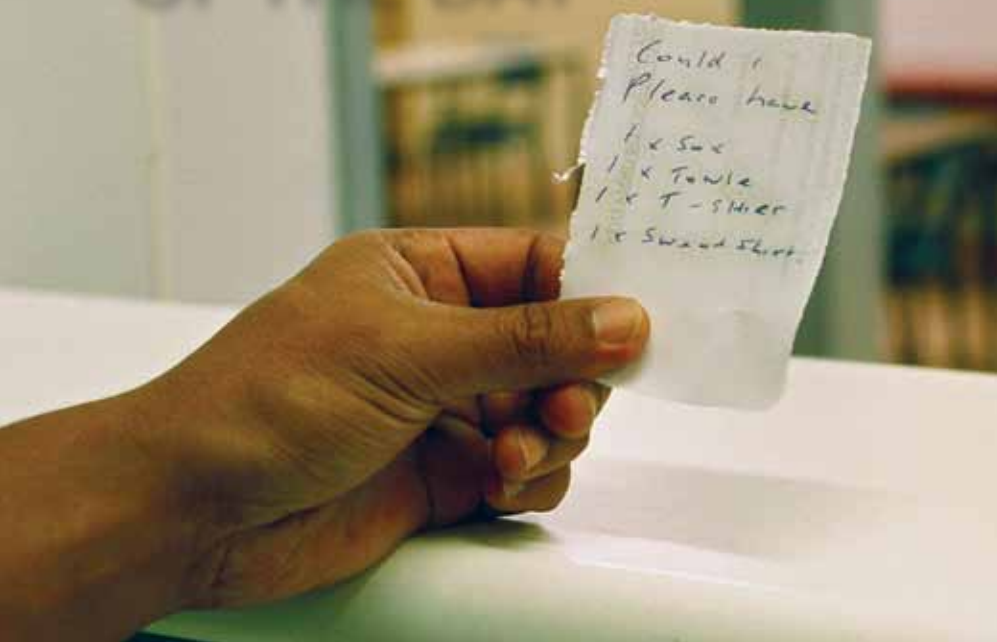 Could i
Please have
1 x Sox
1 x Towle
1 x T-Shier
1 x Sweat Shirt.